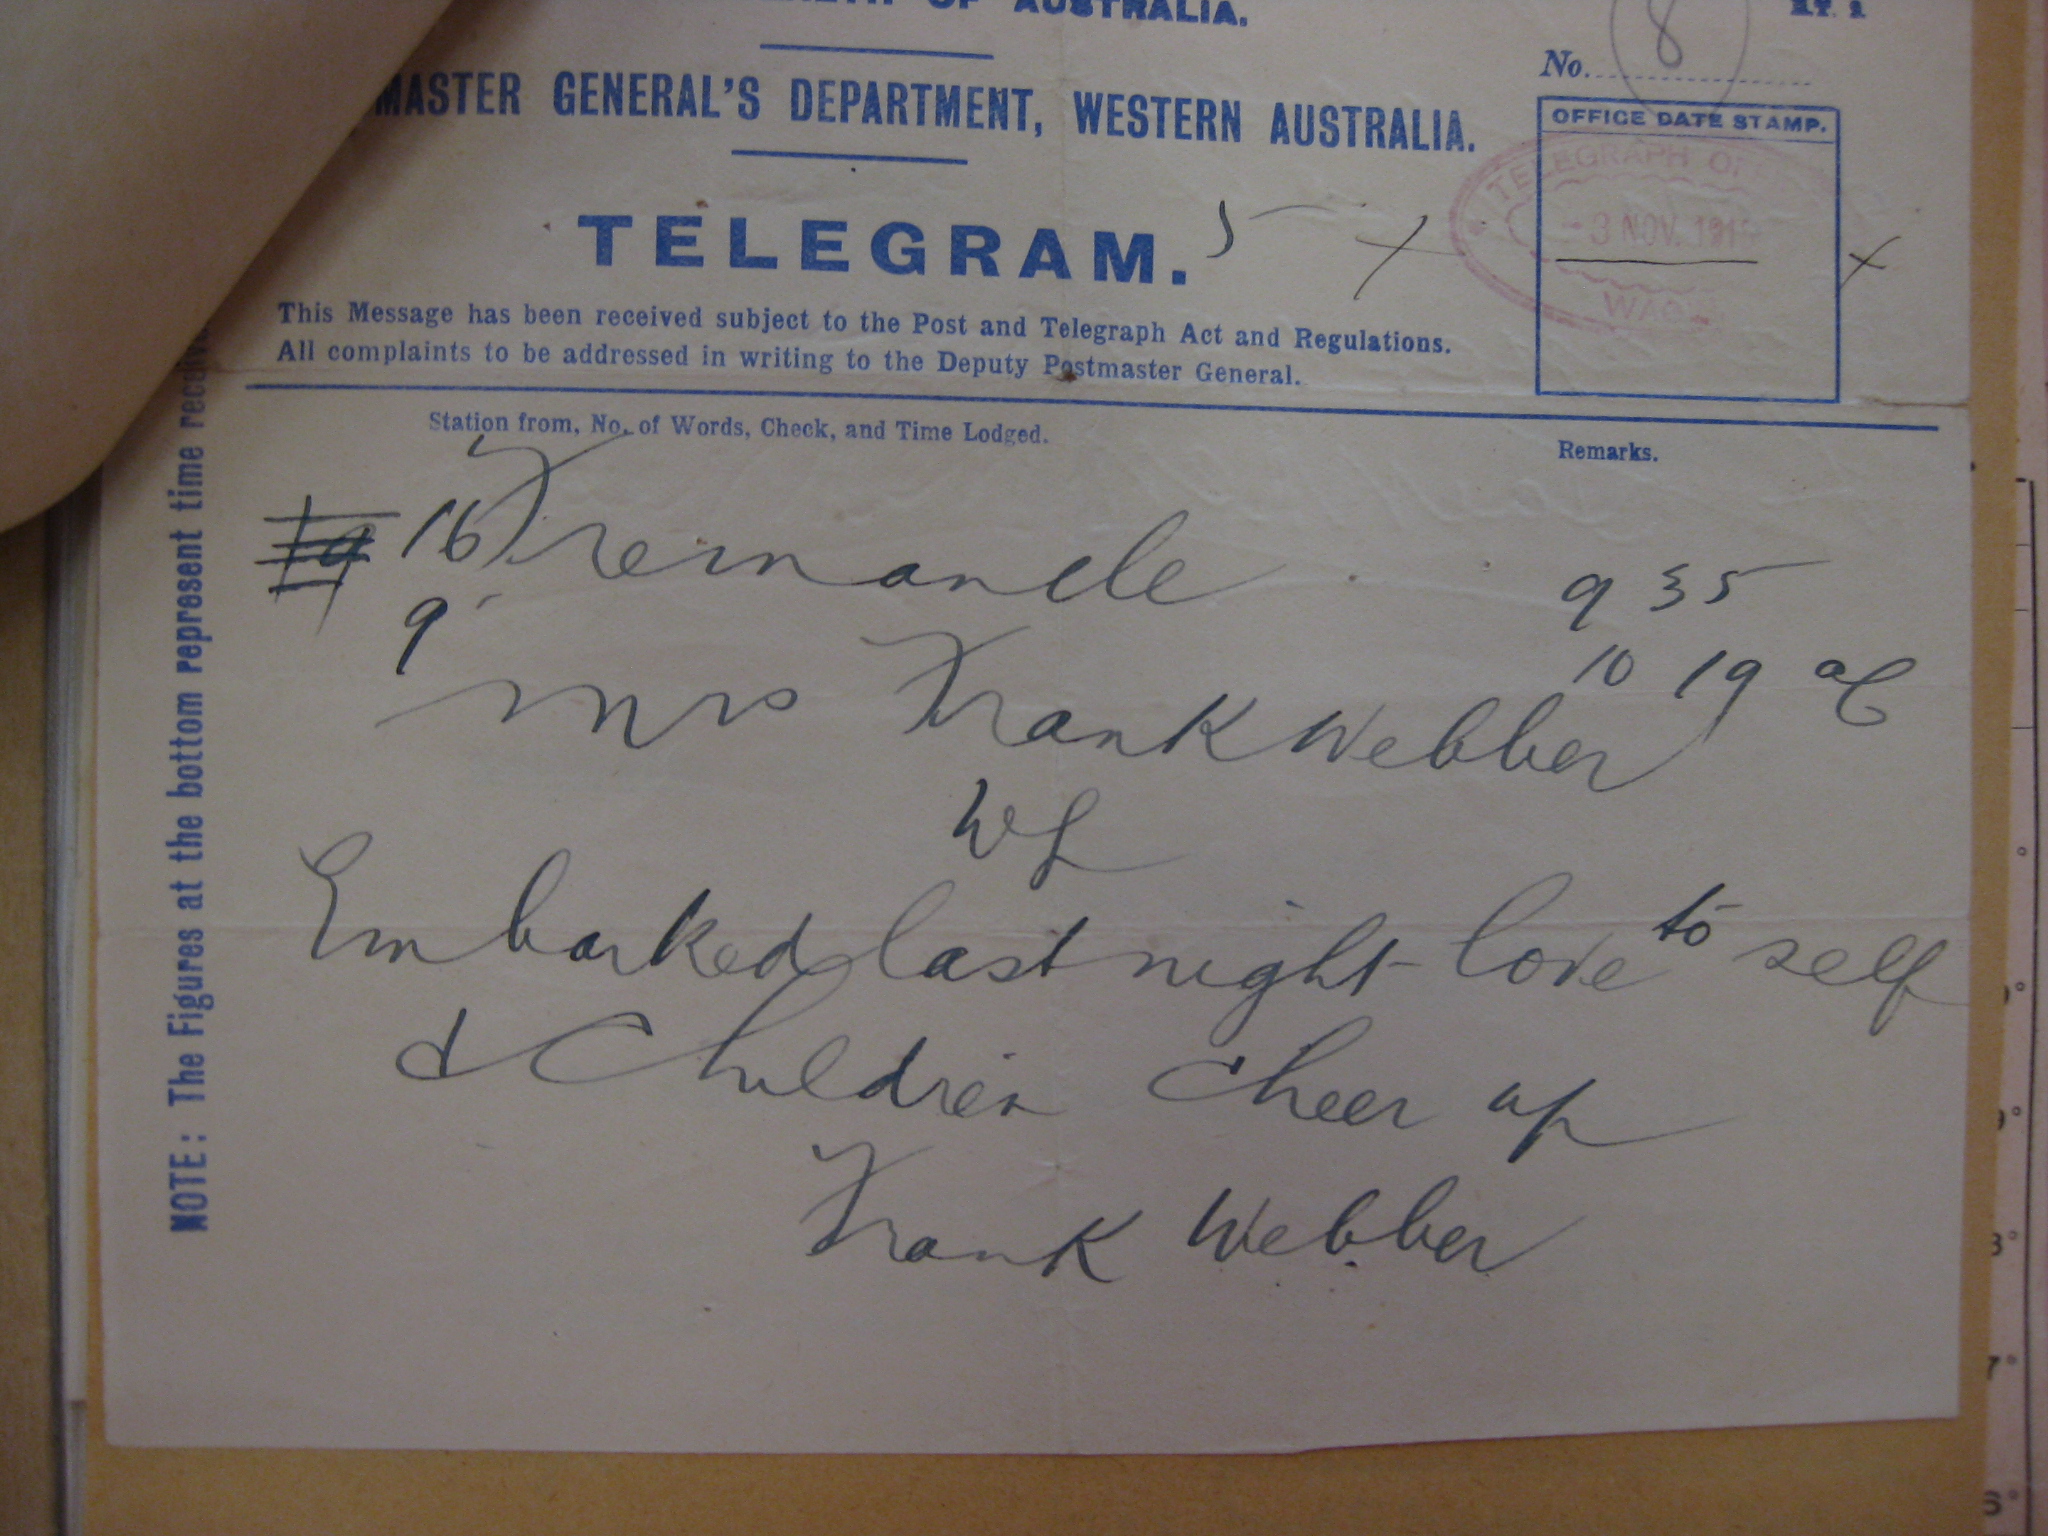 OF AUSTRALIA.
MASTER GENERAL'S DEPARTMENT, WESTERN AUSTRALIA.
TELEGRAM.
This Message has been received subject to the Post and Telegraph Act and Regulations.
All complaints to be addressed in writing to the Deputy Postmaster General.
8
No.
OFFICE DATE STAMP.
TELEGRAPH
3 NOV. 191
Station from, No. of Words, Check, and Time Lodged.
Remarks.
16 Fremancle 9 35
9 10 19
Mrs Frank Webber
Embarked last night love to self
& Children cheer up
Frank Webber
NOTE: The Figures at the bottom represent time